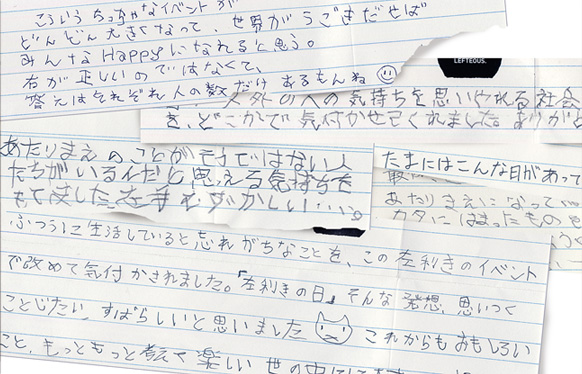 こういうちっちゃなイベントが
どんどん大きくなって、世界がうごきだせば
みんなHappyになれると思う。
右が正しいのではなくて、
答えはそれぞれ人の数だけあるもんね
LEFTEOUS.
人の気持ちを思いやれる社会
を、どこかで気付かせてくれました。ありがと
あたりまえのことがそうではない人
たちがいるんだと思える気持ちを
もてました 左手むずかしい・・・。
たまにはこんな日があって
あたりまえになって
カタにはまったもの
ふつうに生活していると忘れがちなことを、この左利きのイベント
で改めて気付かされました。「左利きの日」そんな発想、思いつく
ことじたい、すばらしいと思いました これからもおもしろい
こと、もっともっと考えて楽しい世の中に